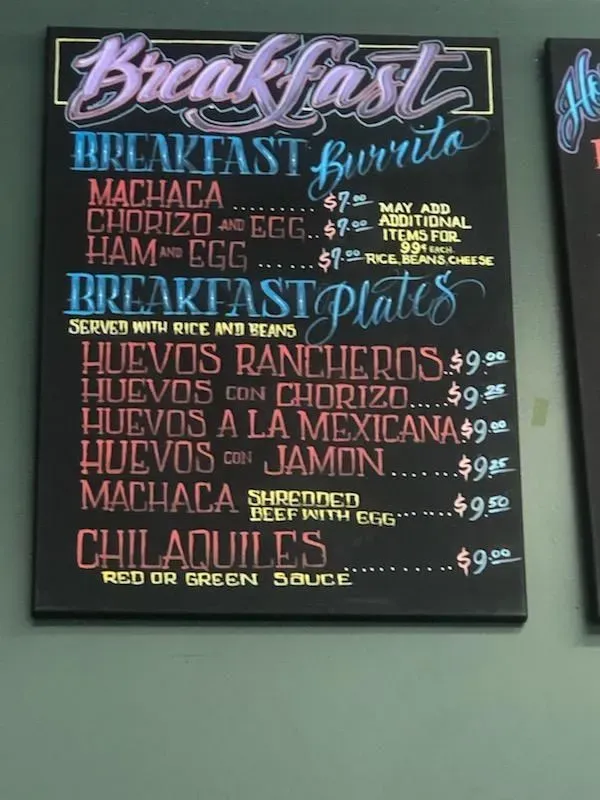 Breakfast
BREAKFAST Burrito
MACHACA ......... $7.00
CHORIZO AND EGG.. $7.00
HAM AND EGG ...... $7.00
MAY ADD
ADDITIONAL
ITEMS FOR
99¢ EACH.
RICE, BEANS, CHEESE
BREAKFAST Plates
SERVED WITH RICE AND BEANS
HUEVOS RANCHEROS..$9.00
HUEVOS CON CHORIZO.....$9.25
HUEVOS A LA MEXICANA $9.00
HUEVOS CON JAMON ....... $9.25
MACHACA SHREDDED
BEEF WITH EGG...... $9.50
CHILAQUILES .......... $9.00
RED OR GREEN SAUCE